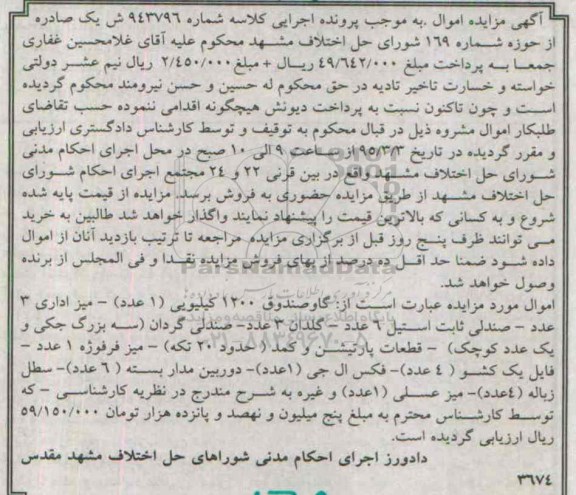 آگهی مزایده اموال .به موجب پرونده اجرایی کلاسه شماره ۹۴۳۷۹۶ ش یک صادره
از حوزه شماره ۱۶۹ شورای حل اختلاف مشهد محکوم علیه آقای غلامحسین غفاری
جمعا به پرداخت مبلغ ۴۹/۶۴۲/۰۰۰ ریال + مبلغ ۲/۴۵۰/۰۰۰ ریال نیم عشر دولتی
خواسته و خسارت تاخیر تادیه در حق محکوم له حسین و حسن نیرومند محکوم گردیده
است و چون تاکنون نسبت به پرداخت دیونش هیچگونه اقدامی ننموده حسب تقاضای
طلبکار اموال مشروه ذیل در قبال محکوم به توقیف و توسط کارشناس دادگستری ارزیابی
و مقرر گردیده در تاریخ ۹۵/۳/۳ از ساعت ۹ الی ۱۰ صبح در محل اجرای احکام مدنی
شورای حل اختلاف مشهد واقع در بین قرنی ۲۲ و ۲۴ مجتمع اجرای احکام شورای
حل اختلاف مشهد از طریق مزایده حضوری به فروش برسد. مزایده از قیمت پایه شده
شروع و به کسانی که بالاترین قیمت را پیشنهاد نمایند واگذار خواهد شد طالبین به خرید
می توانند ظرف پنج روز قبل از برگزاری مزایده مراجعه تا ترتیب بازدید آنان از اموال
داده شود ضمنا حد اقل ده درصد از بهای فروش مزایده نقدا و فی المجلس از برنده
وصول خواهد شد.
اموال مورد مزایده عبارت است از: گاوصندوق ۱۲۰۰ کیلویی (۱ عدد) - میز اداری ۳
عدد - صندلی ثابت استیل ۶ عدد - گلدان ۳ عدد- صندلی گردان (سه بزرگ جکی و
یک عدد کوچک) - قطعات پارتیشن و کمد ( حدود ۳۰ تکه) - میز فرفوژه ۱ عدد -
فایل یک کشو ( ۴ عدد)- فکس ال جی (۱عدد)- دوربین مدار بسته ( ۶ عدد)- سطل
زباله (۴عدد)- میز عسلی (۱عدد) و غیره به شرح مندرج در نظریه کارشناسی - که
توسط کارشناس محترم به مبلغ پنج میلیون و نهصد و پانزده هزار تومان ۵۹/۱۵۰/۰۰۰
ریال ارزیابی گردیده است.
دادورز اجرای احکام مدنی شوراهای حل اختلاف مشهد مقدس
۳۶۷۴
ParsNamadData
۰۲۱-۸۸۳۴۹۶۷۰-۵